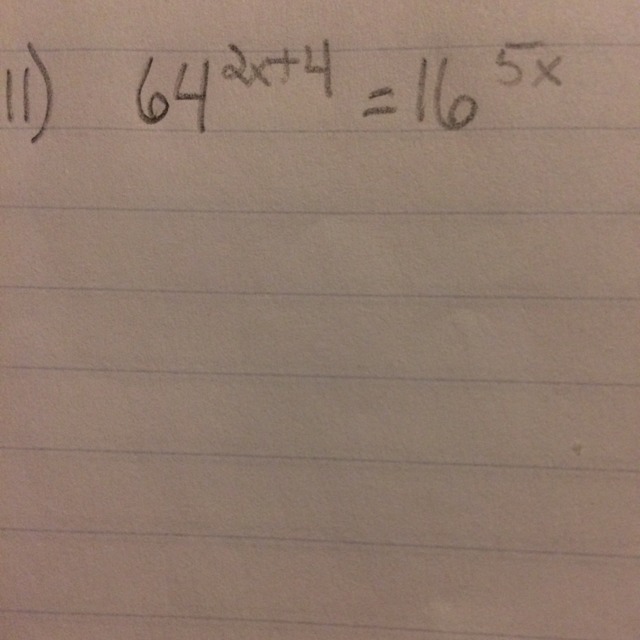 11) 64^{2x+4} = 16^{5x}